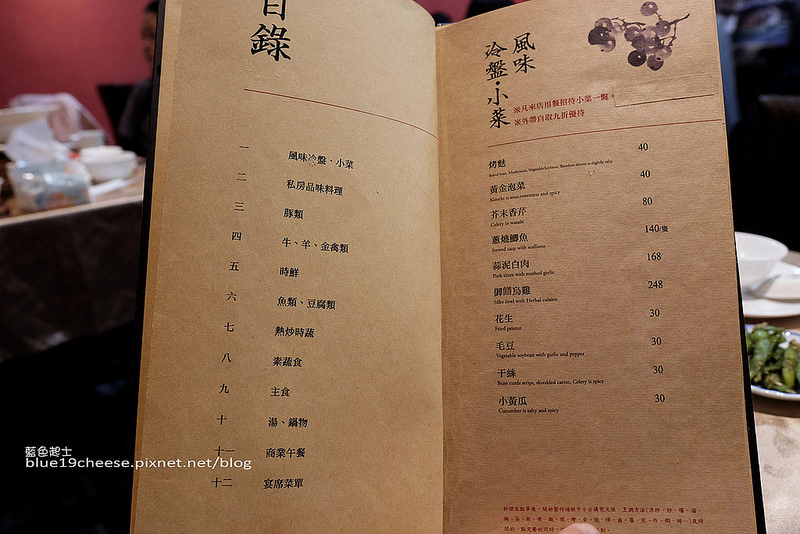 目錄
一 風味冷盤・小菜
二 私房品味料理
三 豚類
四 牛、羊、金禽類
五 時鮮
六 魚類、豆腐類
七 熱炒時蔬
八 素蔬食
九 主食
十 湯、鍋物
十一 商業午餐
十二 宴席菜單
風味
冷盤・小菜
※凡來店用餐招待小菜一盤,
※外帶自取九折優待
烤麩 40
黃金泡菜 40
Kimchi is sour,sweetness and spicy
芥末香芹 80
Celery in wasabi
蔥燒鯽魚 140/隻
Stewed carp with scallions
蒜泥白肉 168
Pork slices with mashed garlic
御膳烏雞 248
Silky fowl with Herbal cuisine
花生 30
Fried peanut
毛豆 30
Vegetable soybean with garlic and pepper
干絲 30
Bean curds strips, shredded carrot, Celery is spicy
小黃瓜 30
Cucumber is salty and spicy
藍色起士
blue19cheese.pixnet.net/blog